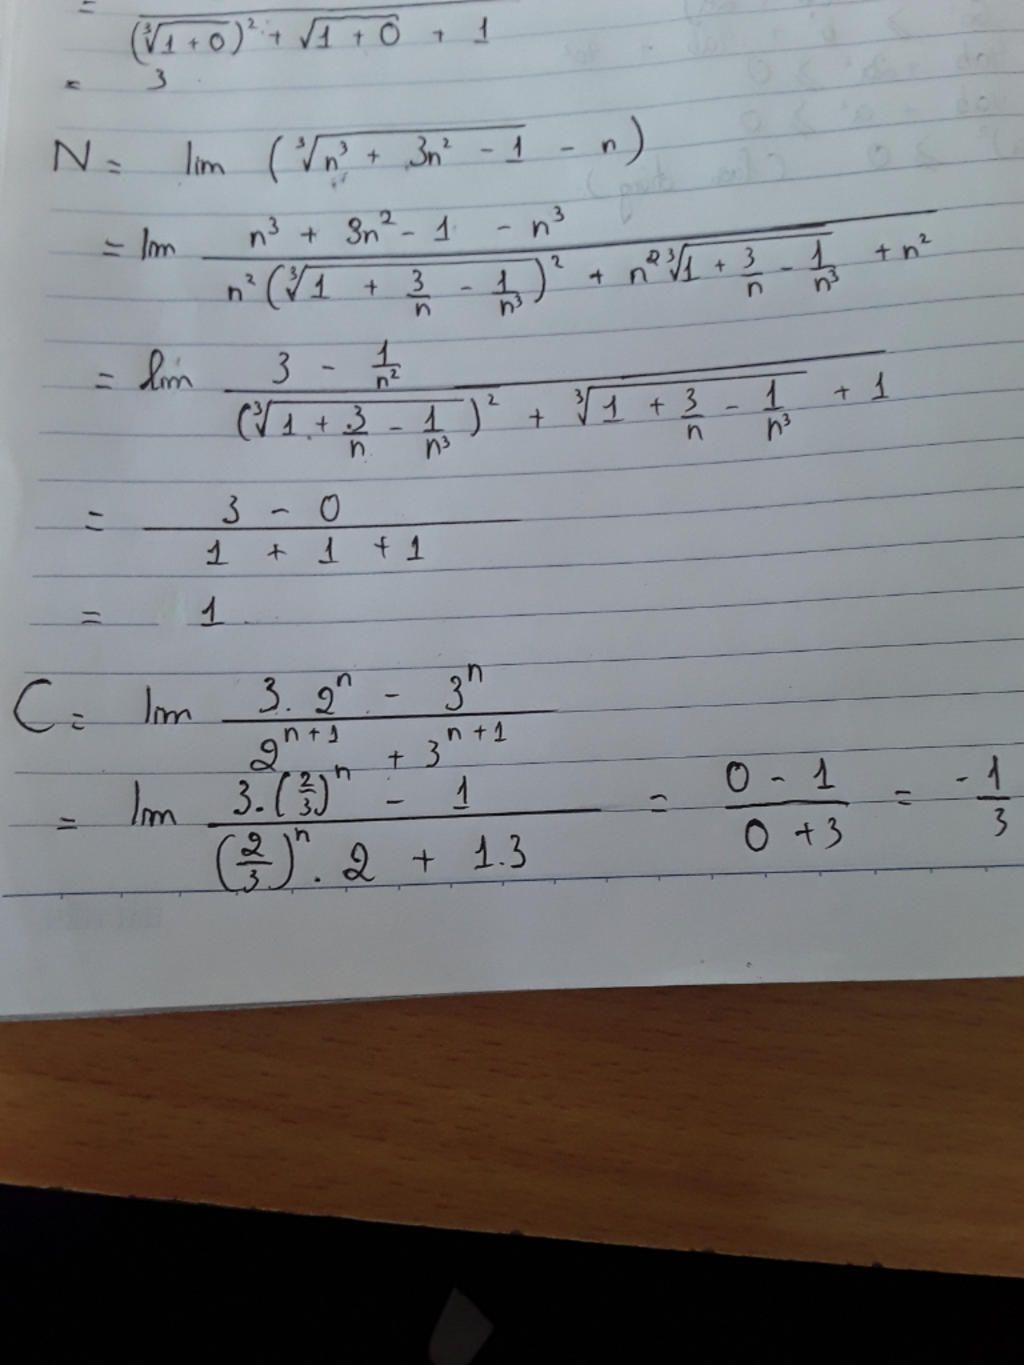 =
(∛(1 + 0))² + √(1 + 0) + 1
= 3
N = lim (∛(n³ + 3n² - 1) - n)
= lim (n³ + 3n² - 1 - n³) / (n² (∛(1 + 3/n - 1/n³))² + n² ∛(1 + 3/n - 1/n³) + n²)
= lim (3 - 1/n²) / ((∛(1 + 3/n - 1/n³))² + ∛(1 + 3/n - 1/n³) + 1)
= (3 - 0) / (1 + 1 + 1)
= 1
C = lim (3.2ⁿ - 3ⁿ) / (2ⁿ⁺¹ + 3ⁿ⁺¹)
= lim (3.(2/3)ⁿ - 1) / ((2/3)ⁿ.2 + 1.3) = (0 - 1) / (0 + 3) = -1/3